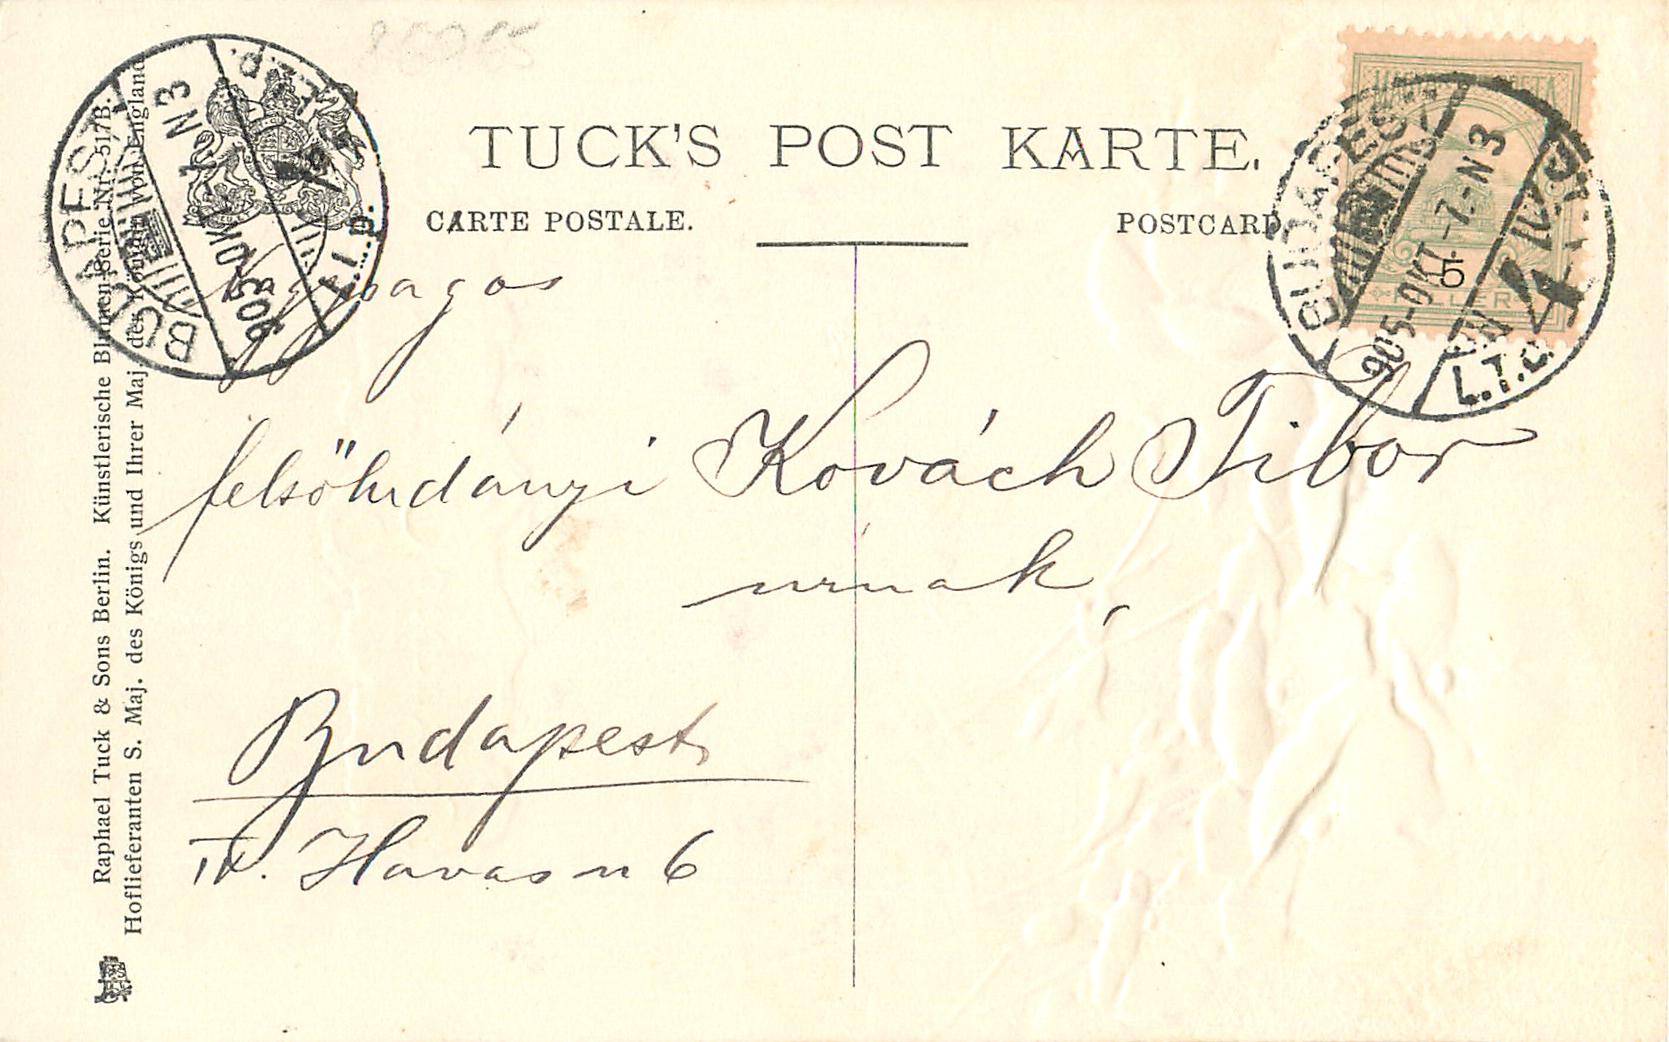 TUCK'S POST KARTE.
CARTE POSTALE.
POSTCARD
BUDAPEST
905 OKT -7. N 3
BUDAPEST
905 - OKT - 7. - N 3
5
FILLER
Nagyságos
felsőhrdányi Kovách Tibor
úrnak,
Budapest
IV. Havas u 6
Raphael Tuck & Sons Berlin. Künstlerische Blumen-Serie Nr. 517B.
Hoflieferanten S. Maj. des Königs und Ihrer Maj. der Königin von England